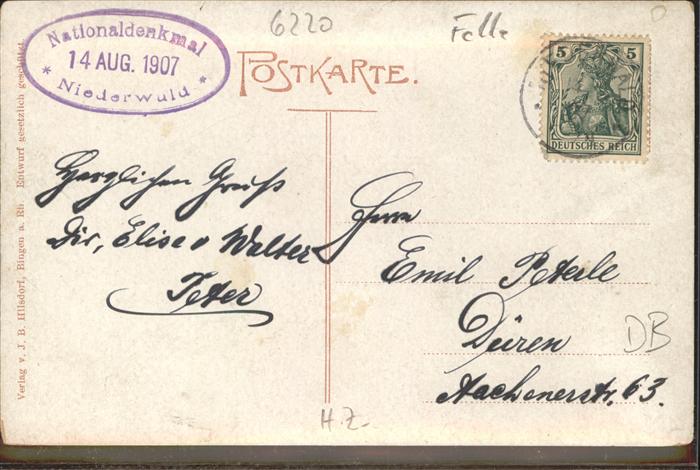 Nationaldenkmal
14 AUG. 1907
* Niederwald *
6220
Felle
POSTKARTE.
5 5
DEUTSCHES REICH
Herzlichen Gruß
Dir, Elise u Walter
Peter
Herrn
Emil Peterle
Düren
Aachenerstr. 63.
DB
H.Z.
Verlag v. J. B. Hilsdorf, Bingen a. Rh. Entwurf gesetzlich geschützt.